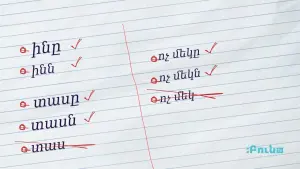 ինը
ինն
տասը
տասն
տաս
ոչ մեկը
ոչ մեկն
ոչ մեկ
:Բունա